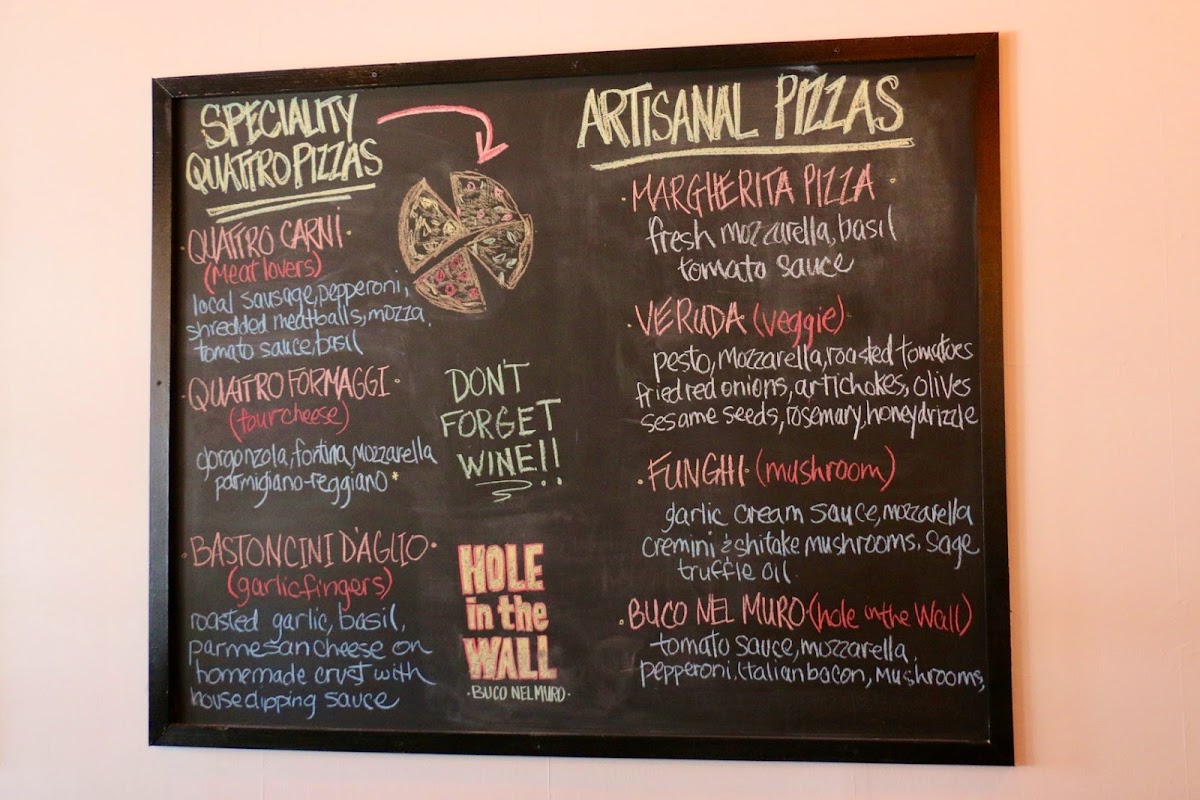 SPECIALITY
QUATTRO PIZZAS
QUATTRO CARNI
(Meat lovers)
local sausage, pepperoni,
shredded meatballs, mozza,
tomato sauce, basil
QUATTRO FORMAGGI
(four cheese)
gorgonzola, fontina, mozzarella
parmigiano-reggiano
BASTONCINI D'AGLIO
(garlic fingers)
roasted garlic, basil,
parmesan cheese on
homemade crust with
house dipping sauce
DON'T
FORGET
WINE!!
HOLE
in the
WALL
· BUCO NEL MURO ·
ARTISANAL PIZZAS
MARGHERITA PIZZA
fresh mozzarella, basil
tomato sauce
VERUDA (veggie)
pesto, mozzarella, roasted tomatoes
fried red onions, artichokes, olives
sesame seeds, rosemary, honey drizzle
FUNGHI (mushroom)
garlic cream sauce, mozzarella
cremini & shitake mushrooms, sage
truffle oil
BUCO NEL MURO (hole in the Wall)
tomato sauce, mozzarella,
pepperoni, Italian bacon, Mushrooms,